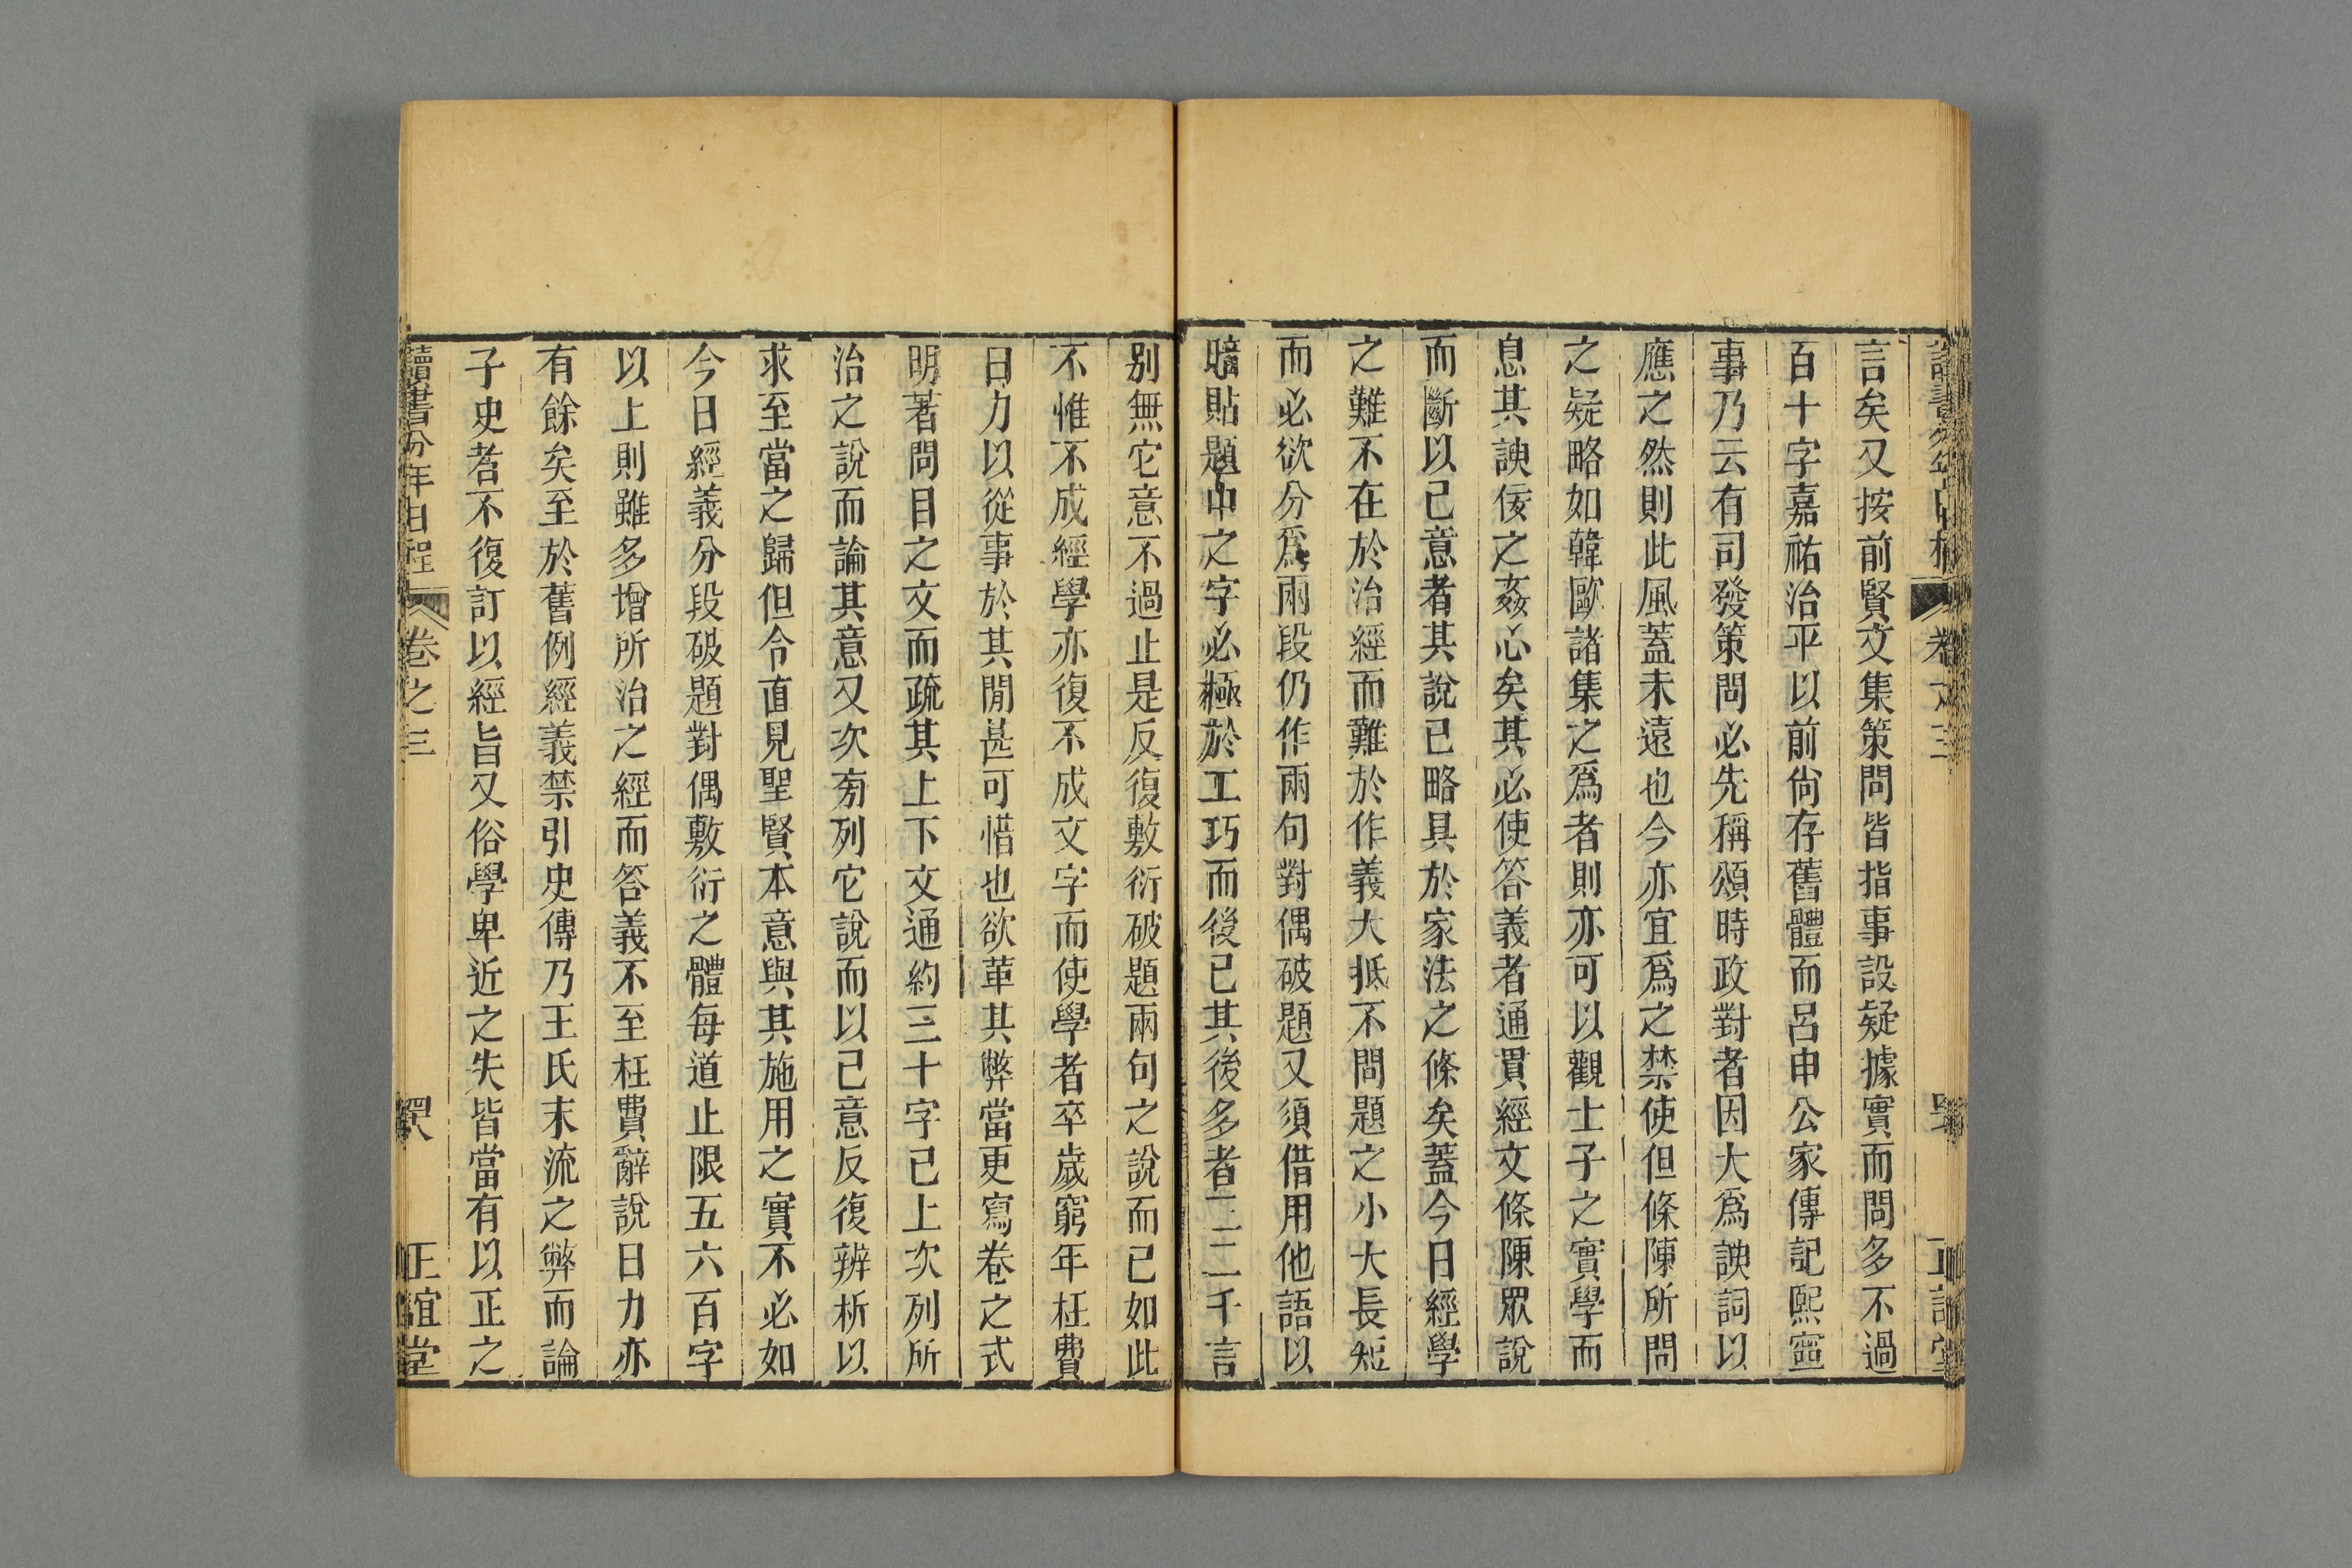 言矣又按前賢文集策問皆指事設疑據實而問多不過
百十字嘉祐治平以前尙存舊體而呂申公家傳記熙寧
事乃云有司發策問必先稱頌時政對者因大爲諛詞以
應之然則此風蓋未遠也今亦宜爲之禁使但條陳所問
之疑略如韓歐諸集之爲者則亦可以觀士子之實學而
息其諛佞之姦心矣其必使答義者通貫經文條陳眾說
而斷以己意者其說已略具於家法之條矣蓋今日經學
之難不在於治經而難於作義大抵不問題之小大長短
而必欲分爲兩段仍作兩句對偶破題又須借用他語以
暗貼題中之字必極於工巧而後已其後多者二三千言
别無它意不過止是反復敷衍破題兩句之說而已如此
不惟不成經學亦復不成文字而使學者卒歲窮年枉費
日力以從事於其閒甚可惜也欲革其弊當更寫卷之式
明著問目之文而疏其上下文通約三十字已上次列所
治之說而論其意又次旁列它說而以己意反復辨析以
求至當之歸但令直見聖賢本意與其施用之實不必如
今日經義分段破題對偶敷衍之體每道止限五六百字
以上則雖多增所治之經而答義不至枉費辭說日力亦
有餘矣至於舊例經義禁引史傳乃王氏末流之弊而論
子史者不復訂以經旨又俗學卑近之失皆當有以正之
讀書分年日程 卷之三 正誼堂